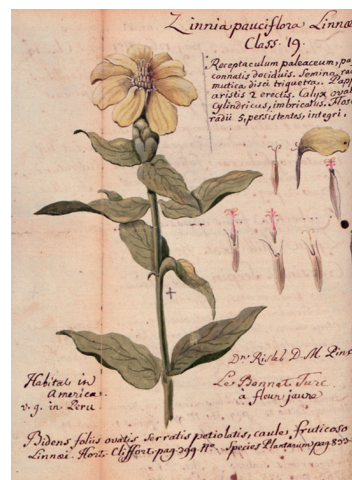 Zinnia pauciflora Linnæ
Class. 19.
Receptaculum paleaceum, pa
connatis deciduis. Semina ra
mutica, disci triquetra. Papp
aristis 2 erectis. Calyx ovat
Cylindricus, imbricatus. Flos
radii 5, persistentes, integri.
Dnus Risleb D. M. Pinx
Habitat in
America.
v. g. in Peru
Le Bonnet Turc
a fleur jaune
Bidens foliis ovatis serratis petiolatis, caule fruticoso
Linnæi. Hort. Cliffort. pag 399 N° Species Plantarum pag 833